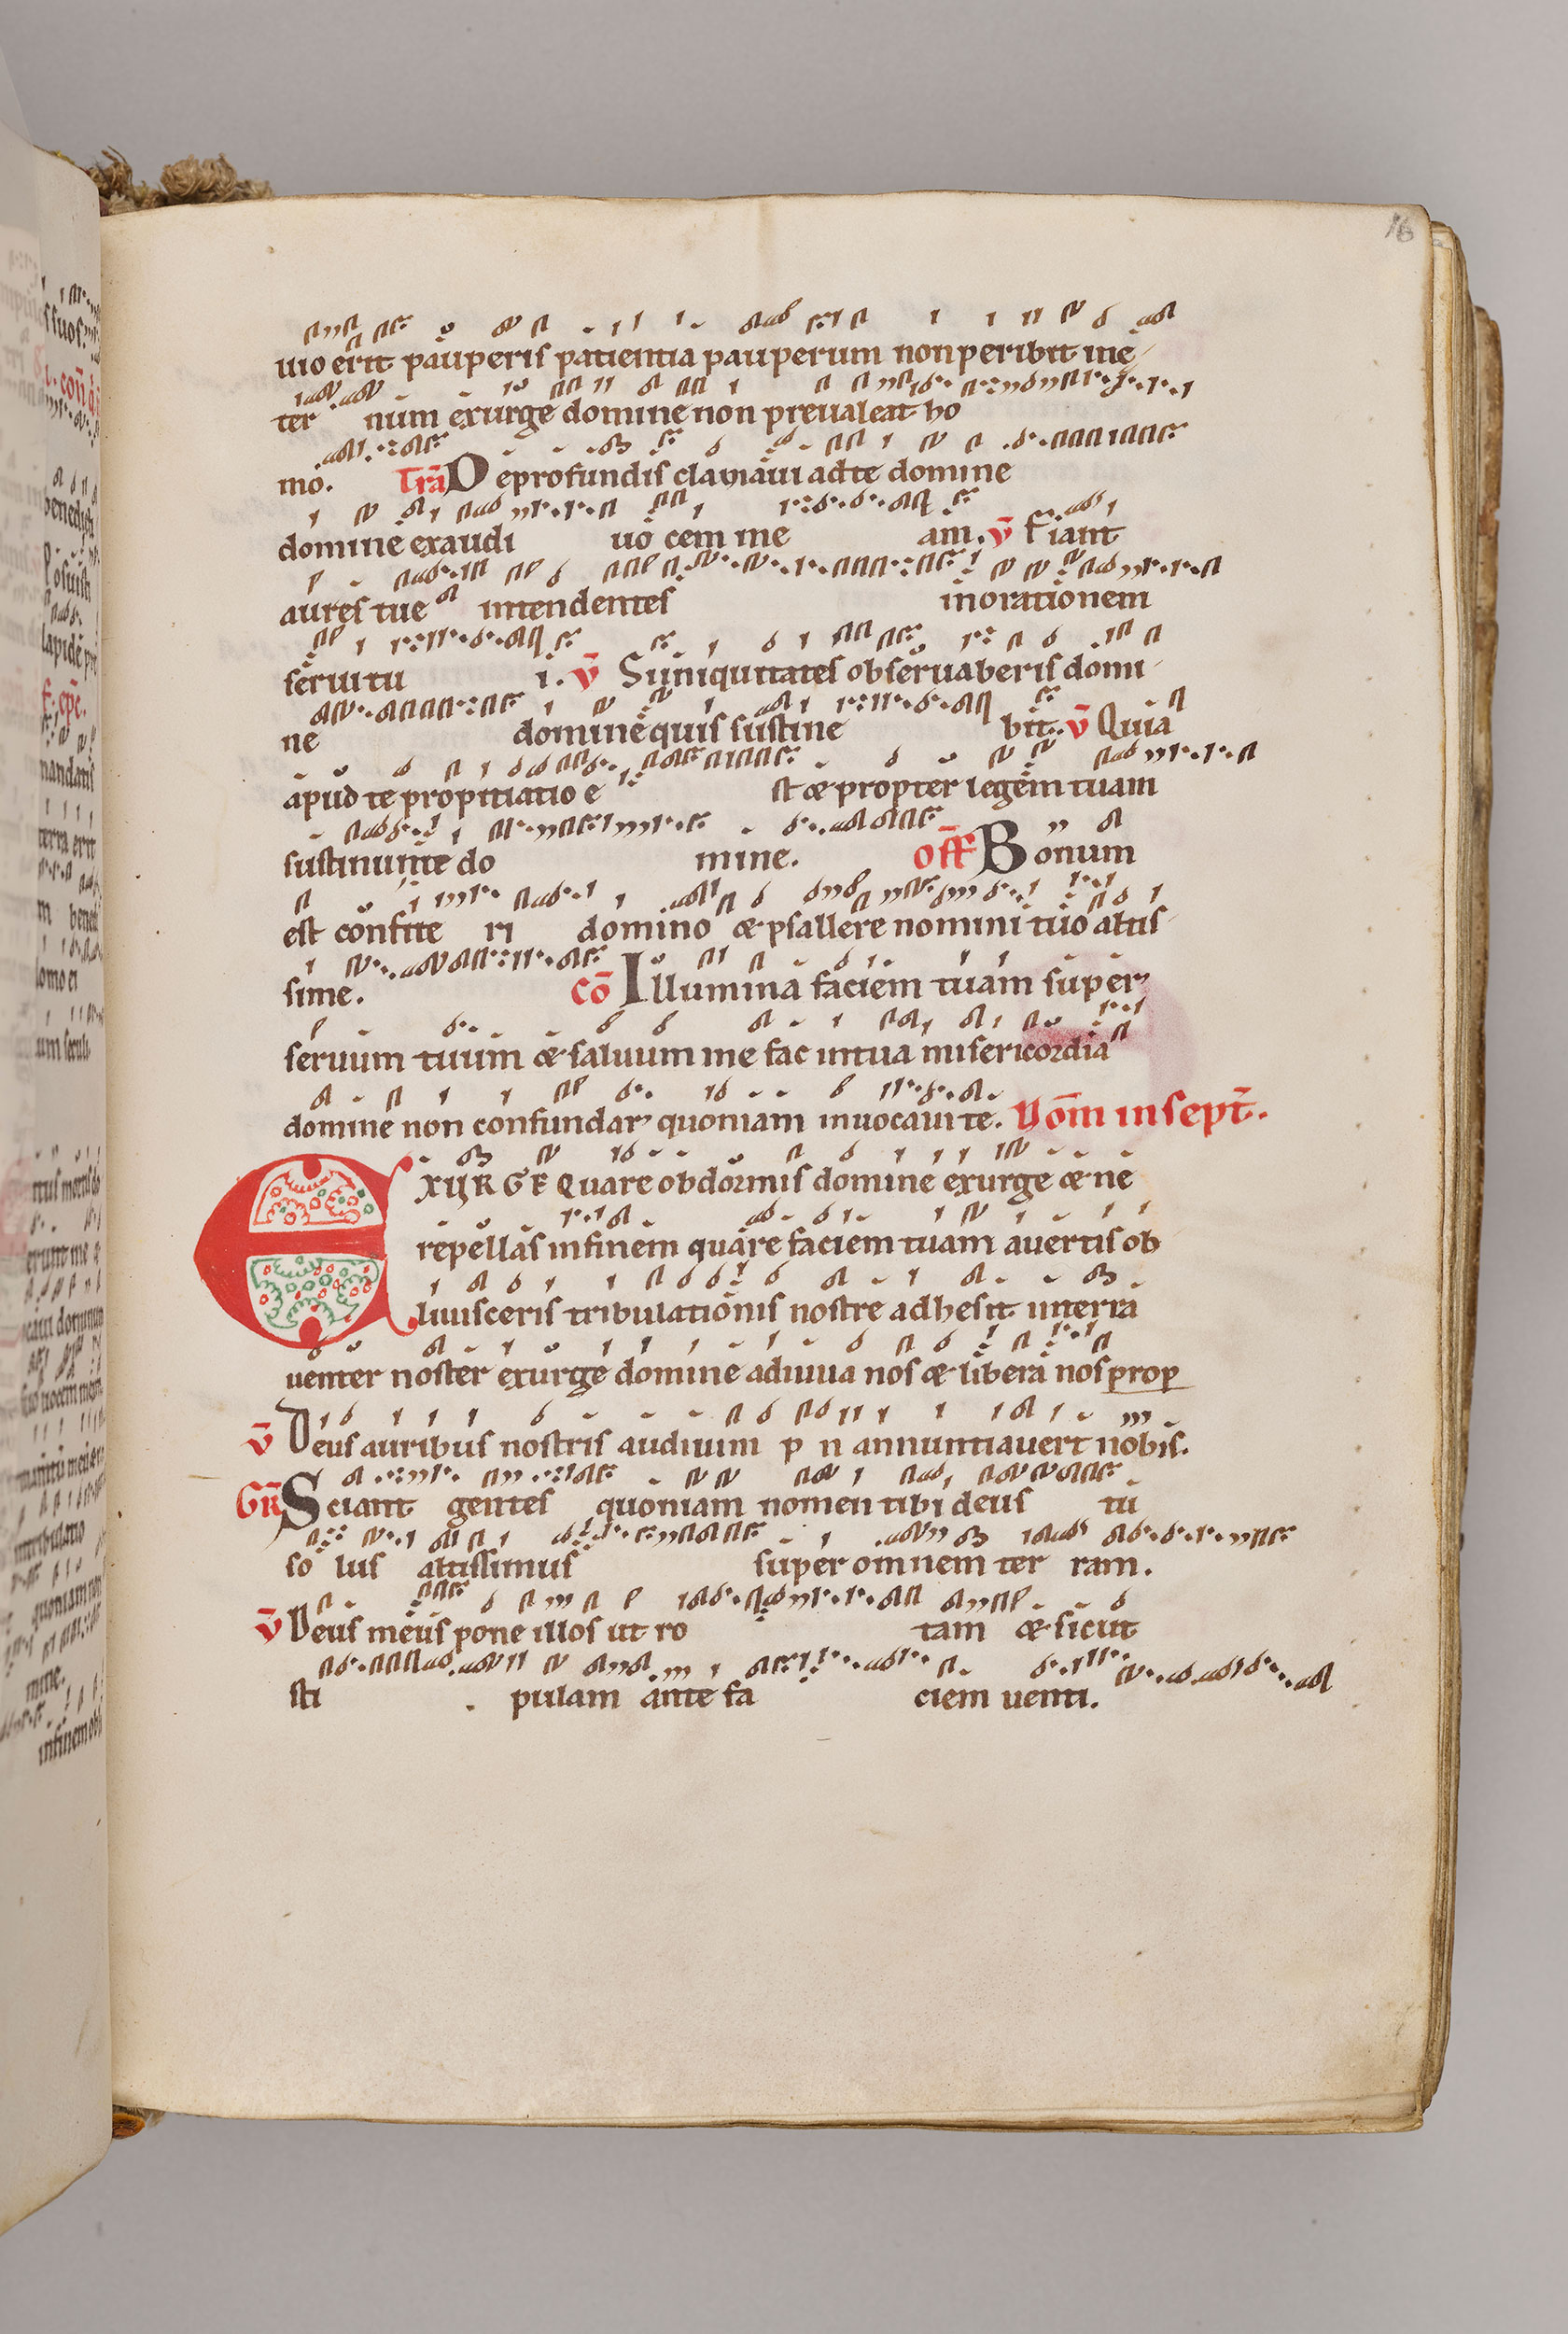 16
uio erit pauperis patientia pauperum non peribit ine
ter num exurge domine non preualeat ho
mo. Tra De profundis clamaui ad te domine
domine exaudi uo cem me am. V Fiant
aures tue intendentes in orationem
serui tu i. V Si iniquitates obseruaberis domi
ne domine quis sustine bit. V Quia
apud te propitiatio e st & propter legem tuam
sustinui te do mine. Off Bonum
est confite ri domino & psallere nomini tuo altis
sime. Co Illumina faciem tuam super
seruum tuum & saluum me fac in tua misericordia
domine non confundar quoniam inuocaui te. Dom in sept.
EXURGE Quare obdormis domine exurge & ne
repellas in finem quare faciem tuam auertis ob
liuisceris tribulationis nostre adhesit in terra
uenter noster exurge domine adiuua nos & libera nos prop
V Deus auribus nostris audiuim p n annuntiauert nobis.
Gr Sciant gentes quoniam nomen tibi deus tu
so lus altissimus super omnem ter ram.
V Deus meus pone illos ut ro tam & sicut
sti . pulam ante fa ciem uenti.